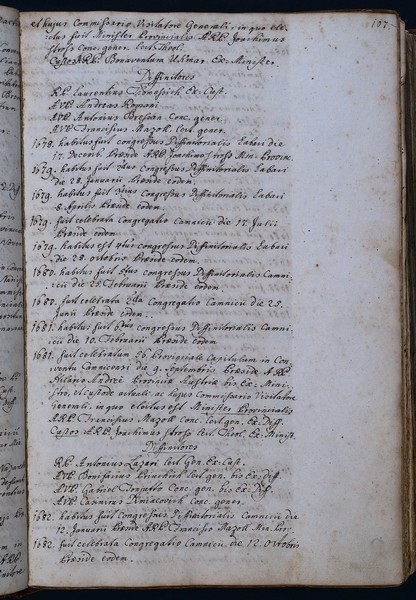 107.
et hujus Commissario Visitatore Generali, in quo ele-
ctus fuit Minister Provincialis A.R.P. Joachimus
Stross Conc. gener. Lect. Theol.
Custos A.R.P. Bonaventura Ex. Minister.
Diffinitores
R.P. Laurentius Ex. Cust.
A.V.P. Andreas Romani
A.V.P. Antonius Conc. gener.
A.V.P. Franciscus Mazoll Lect. gener.
1678. habitus fuit congressus Diffinitorialis Labaci die
17. Decemb. Præside A.R.P. Joachimo Stross Min. Provinc.
1679. habitus fuit 2dus Congressus Diffinitorialis Labaci
die 28. Januarii Præside eodem.
1679. habitus fuit 3tius Congressus Diffinitorialis Labaci
8. Aprilis Præside eodem.
1679. fuit celebrata Congregatio Camnicii die 17. Julii
Præside eodem.
1679. habitus est 4tus congressus Diffinitorialis Labaci
die 28. octobris Præside eodem.
1680. habitus fuit 5tus congressus Diffinitorialis Camni-
cii die 25. Februarii Præside eodem.
1680. fuit celebrata 2da Congregatio Camnicii die 25.
Junii Præside eodem.
1681. habitus fuit 6tus congressus Diffinitorialis Camni-
cii die 10. Februarii Præside eodem
1681. fuit celebratum 56. Provinciale Capitulum in Con-
ventu Camnicensi die 9. Septembris Præside A.R.P.
Hilario Andree Provinciæ Austriæ bis Ex. Mini-
stro, et Custode actuali, ac hujus Commissario Visitatore
Generali, in quo electus est Minister Provincialis
A.R.P. Franciscus Mazoll Conc. Lect. gen. Ex. Diff.
Custos A.R.P. Joachimus Stross Lect. Theol. Ex. Minist.
Diffinitores
R.P. Antonius Lazari Lect. Gen. Ex. Cust.
A.V.P. Bonifacius Lect. gen. bis Ex. Diff.
A.V.P. Gabriel Conc. gen. bis Ex. Diff.
A.V.P. Casimirus Kniacovich Conc. gener.
1682. habitus fuit Congressus Diffinitorialis Camnicii die
12. Januarii Præside A.R.P. Francisco Mazoll Min. Prov.
1682. fuit celebrata Congregatio Camnicii die 12. octobris
Præside eodem.